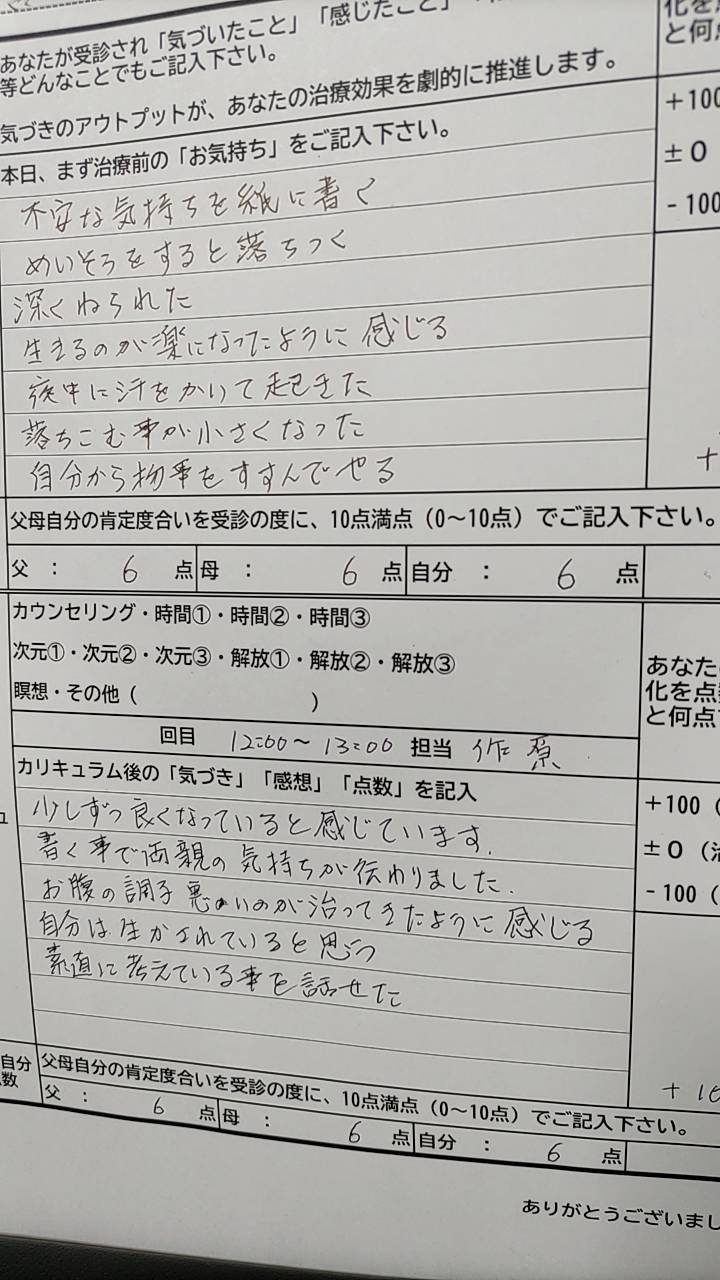 あなたが受診され「気づいたこと」「感じたこと」
等どんなことでもご記入下さい。
気づきのアウトプットが、あなたの治療効果を劇的に推進します。
本日、まず治療前の「お気持ち」をご記入下さい。
化を点
と何点
+100
±0
-100
不安な気持ちを紙に書く
めいそうをすると落ちつく
深くねられた
生きるのが楽になったように感じる
夜中に汗をかいて起きた
落ちこむ事が小さくなった
自分から物事をすすんでやる
+
父母自分の肯定度合いを受診の度に、10点満点(0〜10点)でご記入下さい。
父 : 6 点 母 : 6 点 自分 : 6 点
カウンセリング・時間①・時間②・時間③
次元①・次元②・次元③・解放①・解放②・解放③
瞑想・その他( )
回目 12:00〜13:00 担当 作原
あなた
化を点数
と何点
カリキュラム後の「気づき」「感想」「点数」を記入
+100(
±0(治
-100(
少しずつ良くなっていると感じています.
書く事で両親の気持ちが伝わりました.
お腹の調子悪いのが治ってきたように感じる
自分は生かされていると思う
素直に考えている事を話せた
+10
自分
数
父母自分の肯定度合いを受診の度に、10点満点(0〜10点)でご記入下さい。
父 : 6 点 母 : 6 点 自分 : 6 点
ありがとうございまし